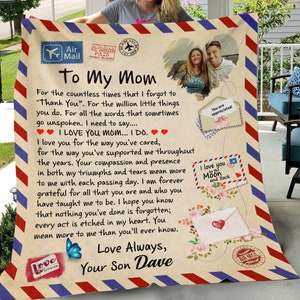 Air
Mail
PAID
To My Mom
For the countless times that I forgot to
"Thank You". For the million little things
you do. For all the words that sometimes
go unspoken. I need to say....
I LOVE YOU MOM... I DO.
I love you for the way you've cared,
for the way you've supported me throughout
the years. Your compassion and presence
in both my triumphs and tears mean more
to me with each passing day. I am forever
grateful for all that you are and who you
have taught me to be. I hope you know
that nothing you've done is forgotten;
every act is etched in my heart. You
mean more to me than you'll ever know.
Love Always,
Your Son Dave
You are
I love you
to the
Moon
and Back
Love